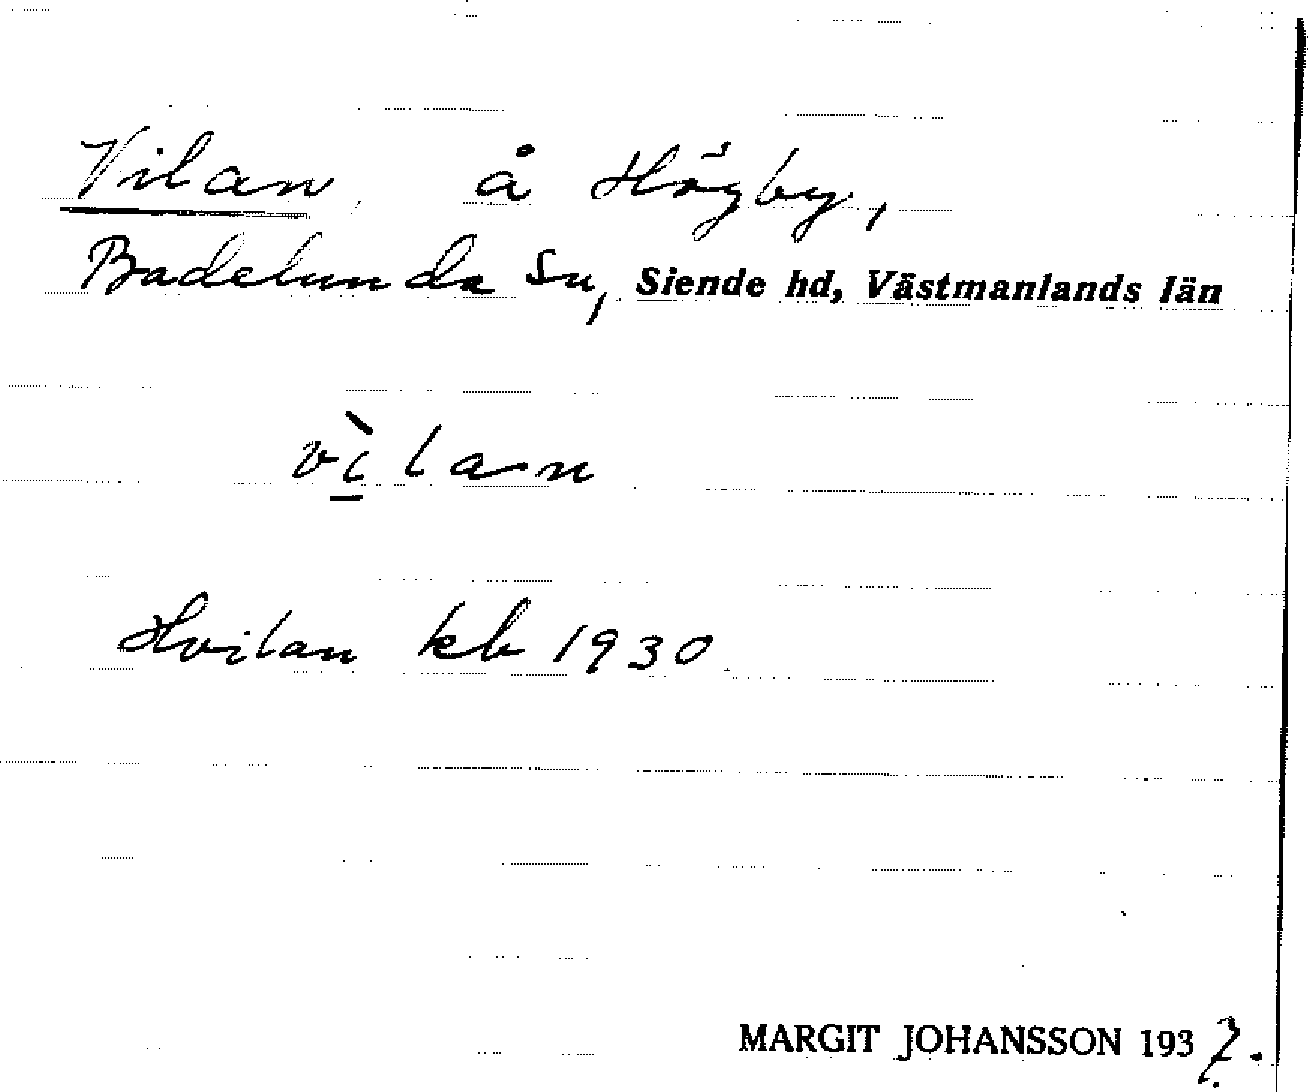 Vilan, å Högby,
Badelunda sn, Siende hd, Västmanlands län
vìlan
Hvilan kb 1930
MARGIT JOHANSSON 193